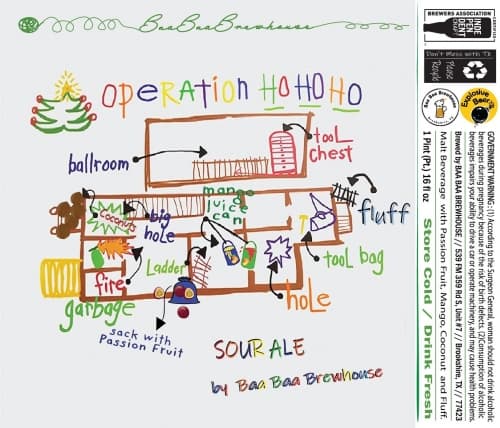 BaaBaaBrewhouse
OPERATION HOHOHO
ballroom
tool
chest
mango
juice
can
Coconuts
big
hole
fluff
Ladder
tool bag
fire
garbage
hole
sack with
Passion Fruit
SOUR ALE
by Baa Baa Brewhouse
BREWERS ASSOCIATION
CERTIFIED
INDE
PEN
DENT
CRAFT
Don't Mess with TX
Please
Recycle
Baa Baa Brewhouse
Explosive
Beers
GOVERNMENT WARNING: (1) According to the Surgeon General, women should not drink alcoholic
beverages during pregnancy because of the risk of birth defects. (2)Consumption of alcoholic
beverages impairs your ability to drive a car or operate machinery, and may cause health problems.
Brewed by BAA BAA BREWHOUSE // 539 FM 359 Rd S, Unit #7 // Brookshire, TX // 77423
Malt Beverage with Passion Fruit, Mango, Coconut and Fluff.
1 Pint (Pt.) 16 fl oz
Store Cold / Drink Fresh